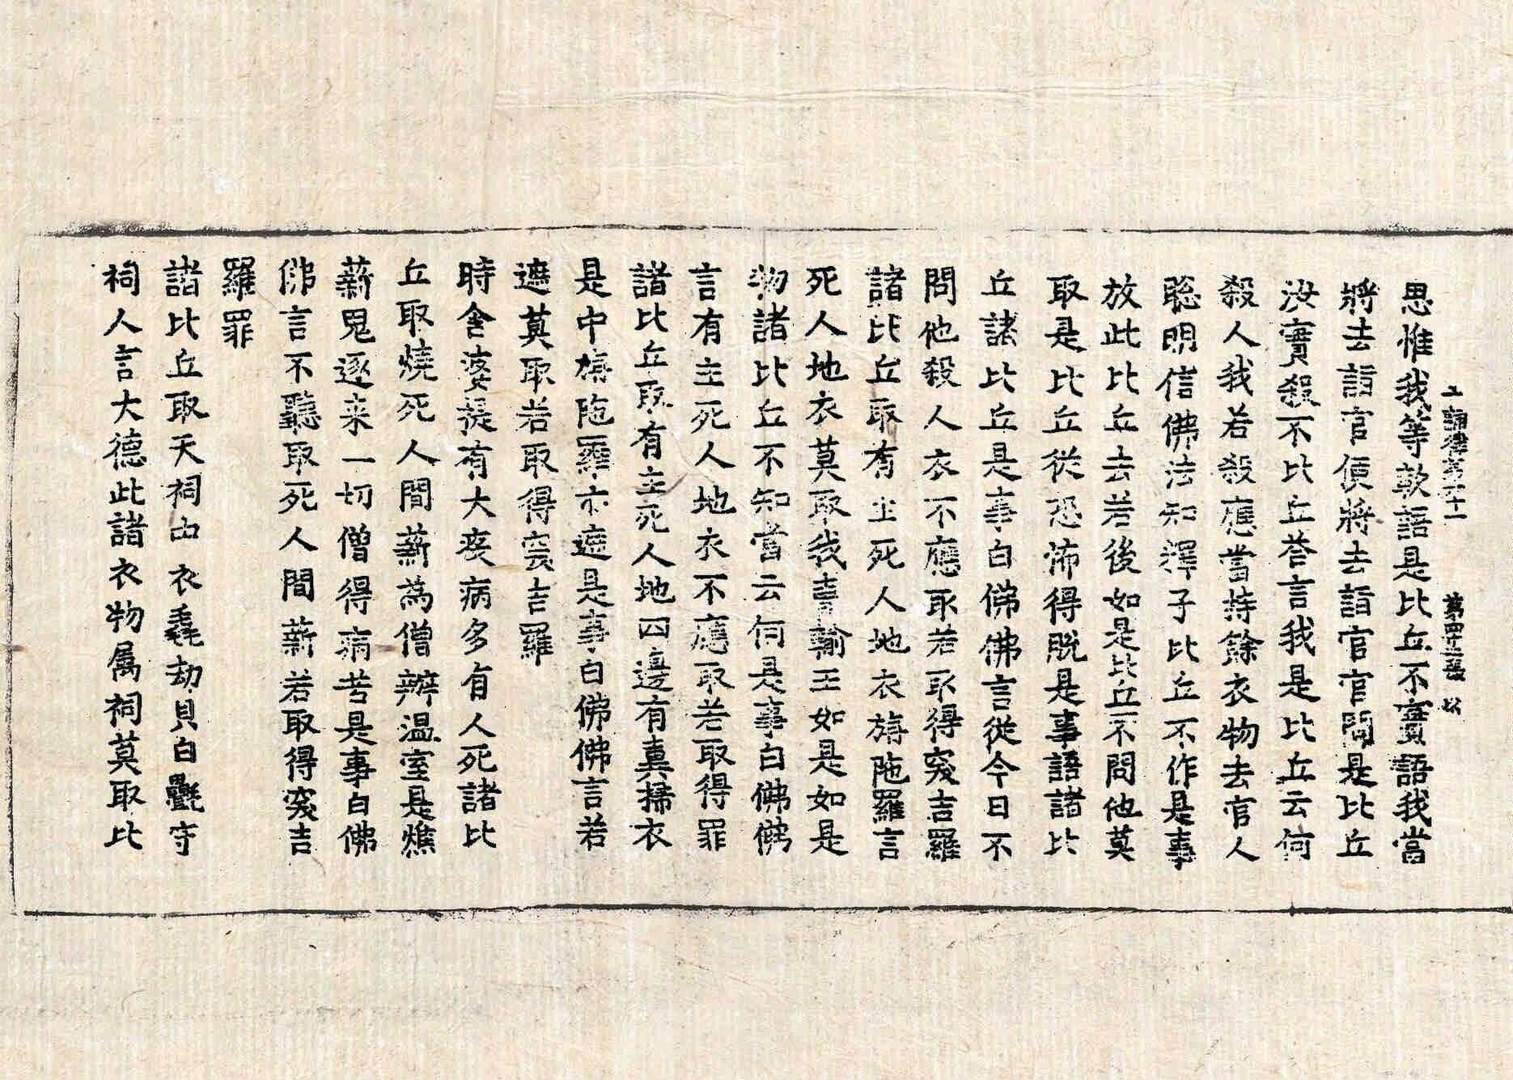 思惟我等軟語是比丘不實語我當
將去詣官便將去詣官官問是比丘
汝實殺不比丘荅言我是比丘云何
殺人我若殺應當持餘衣物去官人
聡明信佛法知釋子比丘不作是事
放此比丘去若後如是比丘不問他莫
取是比丘従恐怖得脫是事語諸比
丘諸比丘是事白佛佛言従今日不
問他殺人衣不應取若取得突吉羅
諸比丘取有主死人地衣旃陁羅言
死人地衣莫取我輸王如是如是
物諸比丘不知當云何是事白佛佛
言有主死人地衣不應取若取得罪
諸比丘取有主死人地四邊有糞掃衣
是中旃陁羅亦遮是事白佛佛言若
遮莫取若取得突吉羅
時舍婆提有大疫病多有人死諸比
丘取燒死人間薪為僧辦温室是燋
薪鬼逐来一切僧得病苦是事白佛
佛言不聽取死人間薪若取得突吉
羅罪
諸比丘取天祠中衣毳劫貝白㲲守
祠人言大德此諸衣物属祠莫取比